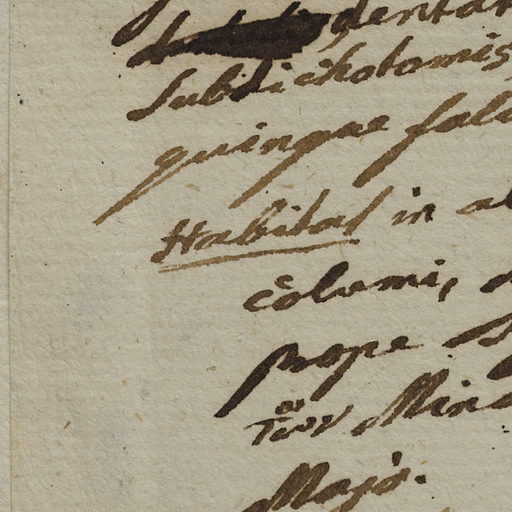 dentar
subdichotomis,
quinque fal
Habitat in al
columi,
prope
Min
Majo.